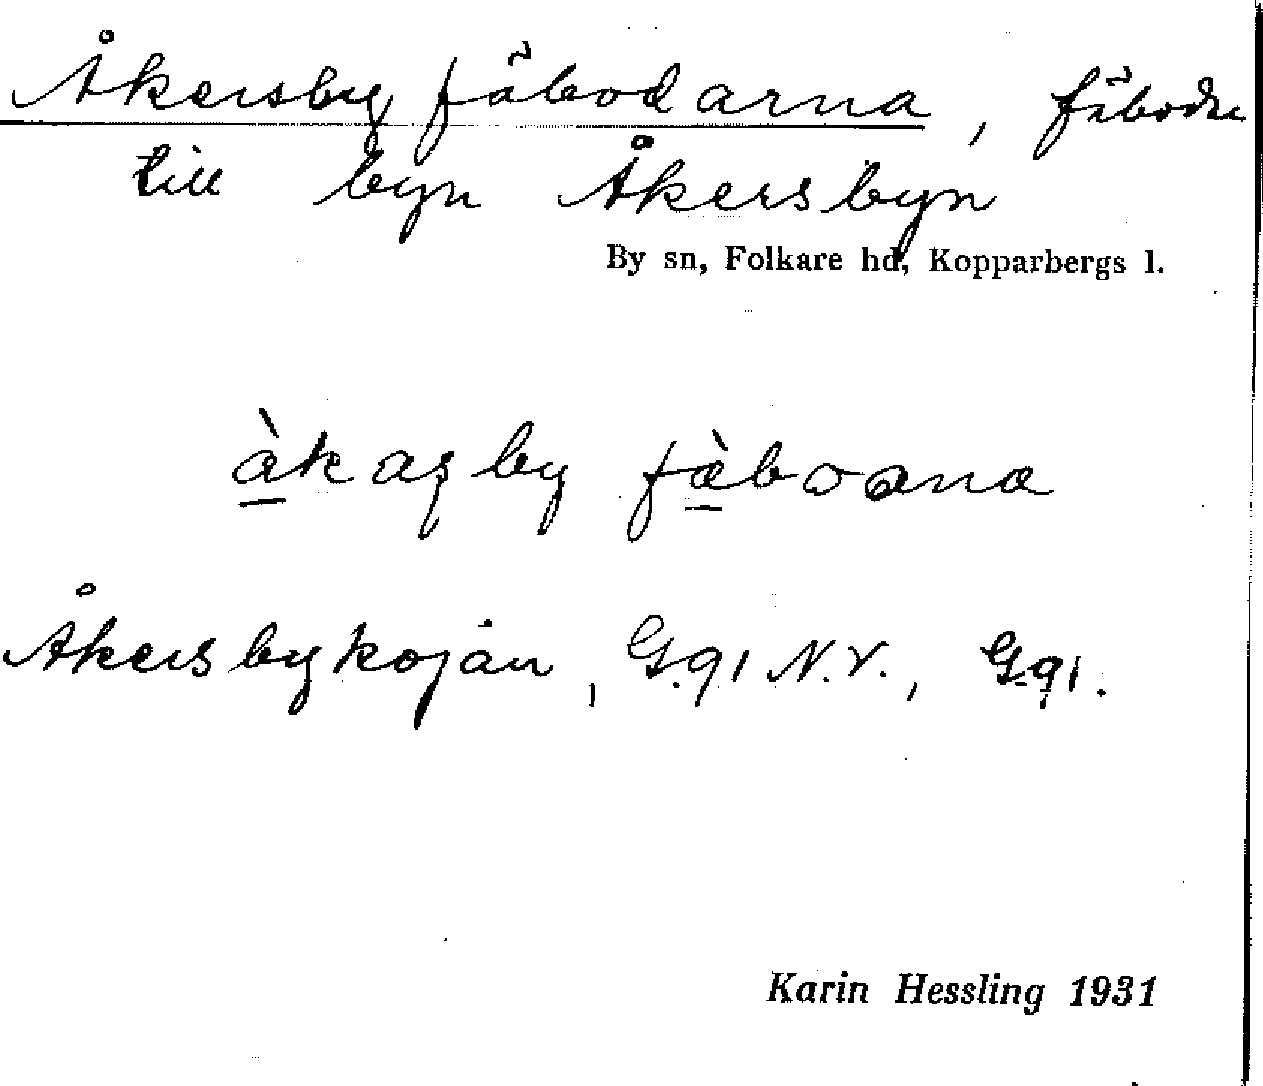 Åkersby fäbodarna, fäbodar
till byn Åkersbyn
By sn, Folkare hd, Kopparbergs l.
àkaʂby fæ̀boana
Åkersbykojan, G.91 N.V., G.91.
Karin Hessling 1931